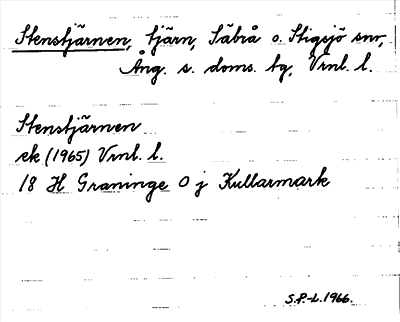 Stenstjärnen, tjärn, Säbrå o. Stigsjö snr,
Ång. s. doms. tg, Vrnl. l.
Stenstjärnen
ek (1965) Vrnl. l.
18 H Graninge O j Kullarmark
S.P.-L. 1966.